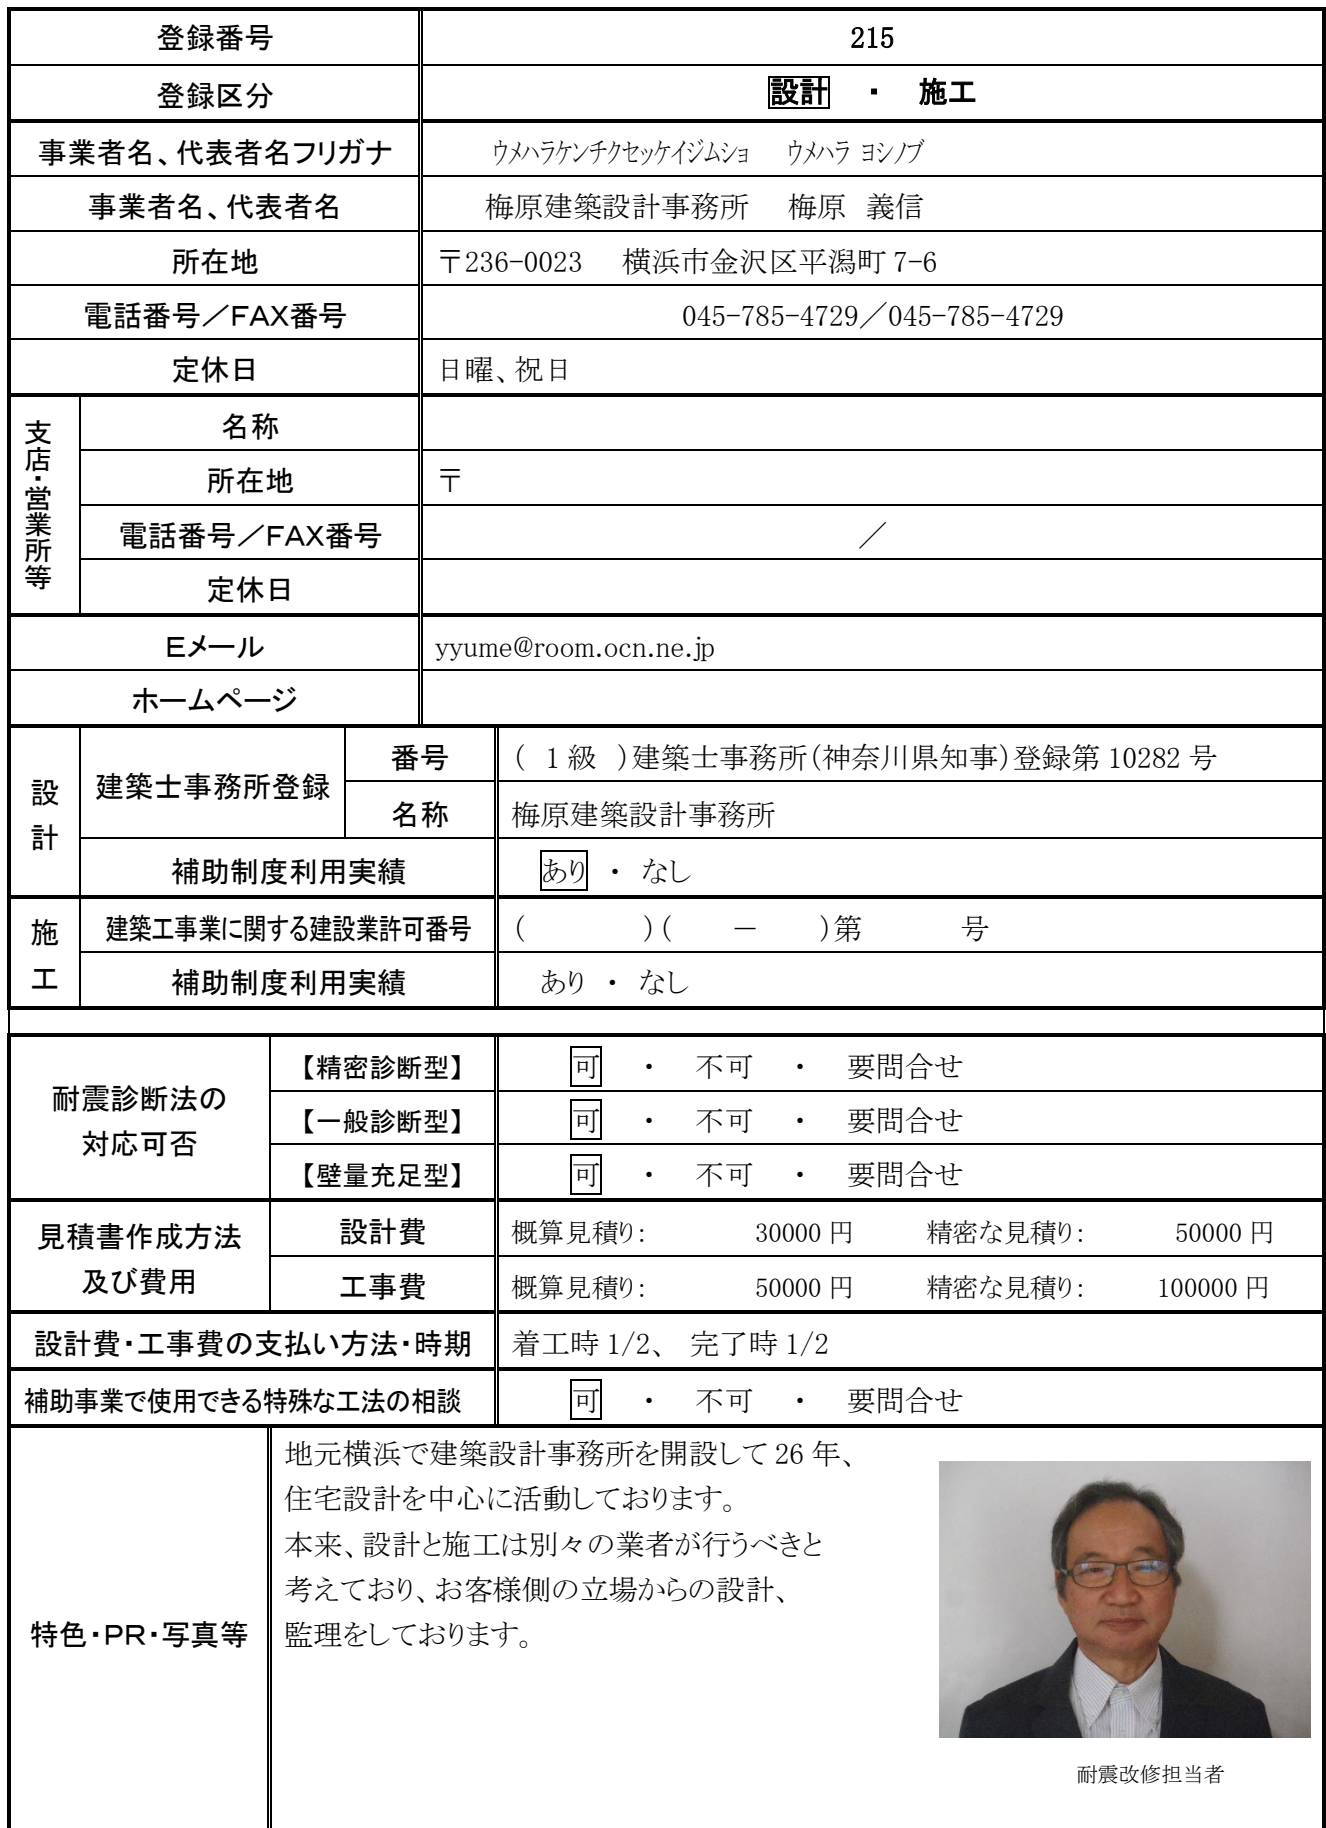 登録番号 215
登録区分 設計 ・ 施工
事業者名、代表者名フリガナ ウメハラケンチクセッケイジムショ ウメハラ ヨシノブ
事業者名、代表者名 梅原建築設計事務所 梅原 義信
所在地 〒236-0023 横浜市金沢区平潟町 7-6
電話番号／FAX番号 045-785-4729／045-785-4729
定休日 日曜、祝日
支店・営業所等
名称
所在地 〒
電話番号／FAX番号 ／
定休日
Eメール yyume@room.ocn.ne.jp
ホームページ
設計
建築士事務所登録
番号 ( 1級 )建築士事務所(神奈川県知事)登録第 10282 号
名称 梅原建築設計事務所
補助制度利用実績 あり ・ なし
施工
建築工事業に関する建設業許可番号 ( )( － )第 号
補助制度利用実績 あり ・ なし
耐震診断法の
対応可否
【精密診断型】 可 ・ 不可 ・ 要問合せ
【一般診断型】 可 ・ 不可 ・ 要問合せ
【壁量充足型】 可 ・ 不可 ・ 要問合せ
見積書作成方法
及び費用
設計費 概算見積り： 30000 円 精密な見積り： 50000 円
工事費 概算見積り： 50000 円 精密な見積り： 100000 円
設計費・工事費の支払い方法・時期 着工時 1/2、 完了時 1/2
補助事業で使用できる特殊な工法の相談 可 ・ 不可 ・ 要問合せ
特色・PR・写真等
地元横浜で建築設計事務所を開設して 26 年、
住宅設計を中心に活動しております。
本来、設計と施工は別々の業者が行うべきと
考えており、お客様側の立場からの設計、
監理をしております。
耐震改修担当者